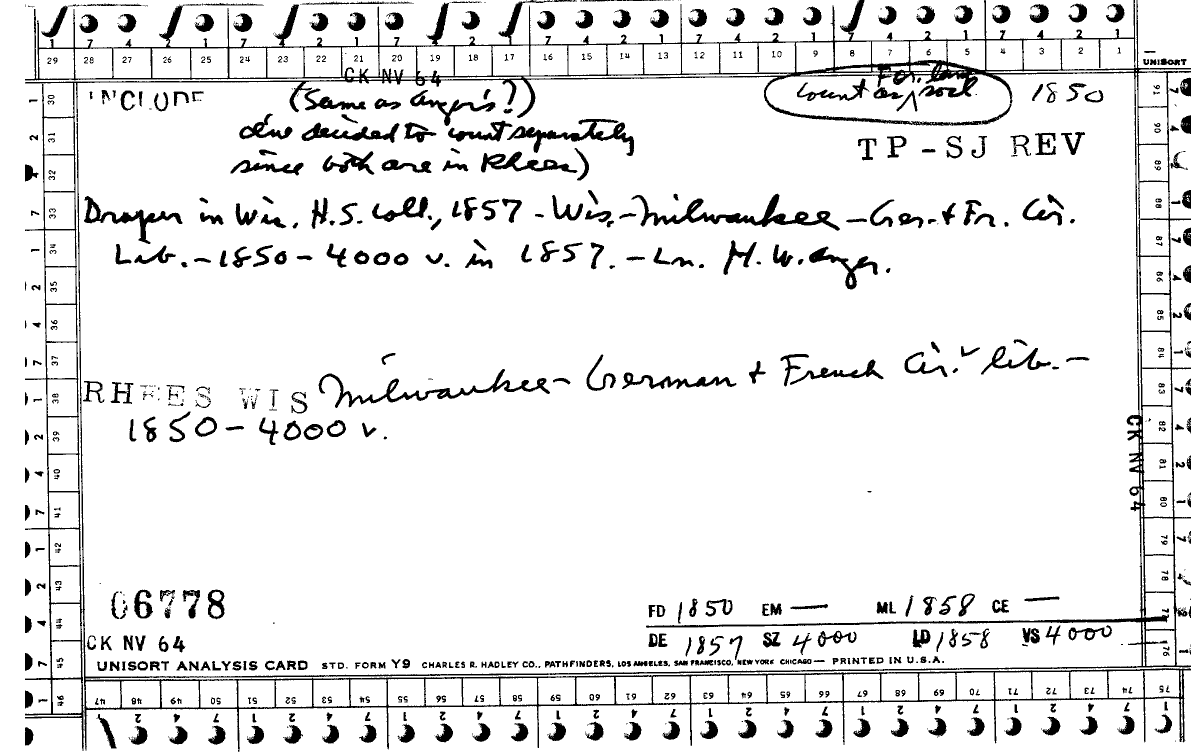 1 7 4 2 1 7 4 2 1 7 4 2 1 7 4 2 1 7 4 2 1 7 4 2 1 7 4 2 1
29 28 27 26 25 24 23 22 21 20 19 18 17 16 15 14 13 12 11 10 9 8 7 6 5 4 3 2 1
UNISORT
CK NV 64
INCLUDE
(Same as Anger's?)
count as For. lang. socl.
1850
I've decided to count separately
since both are in Rhees)
TP-SJ REV
Draper in Wis. H.S. Coll., 1857 - Wis. - Milwaukee - Ger. & Fr. Cir.
Lib. - 1850 - 4000 v. in 1857. - Ln. H. W. Anger.
RHEES WIS Milwaukee - German + French Cir. lib. -
1850 - 4000 v.
CK NV 64
06778
FD 1850 EM — ML 1858 CE —
DE 1857 SZ 4000 LD 1858 VS 4000
CK NV 64
UNISORT ANALYSIS CARD STD. FORM Y9 CHARLES R. HADLEY CO., PATHFINDERS, LOS ANGELES, SAN FRANCISCO, NEW YORK CHICAGO — PRINTED IN U.S.A.
30 31 32 33 34 35 36 37 38 39 40 41 42 43 44 45 46
47 48 49 50 51 52 53 54 55 56 57 58 59 60 61 62 63 64 65 66 67 68 69 70 71 72 73 74 75